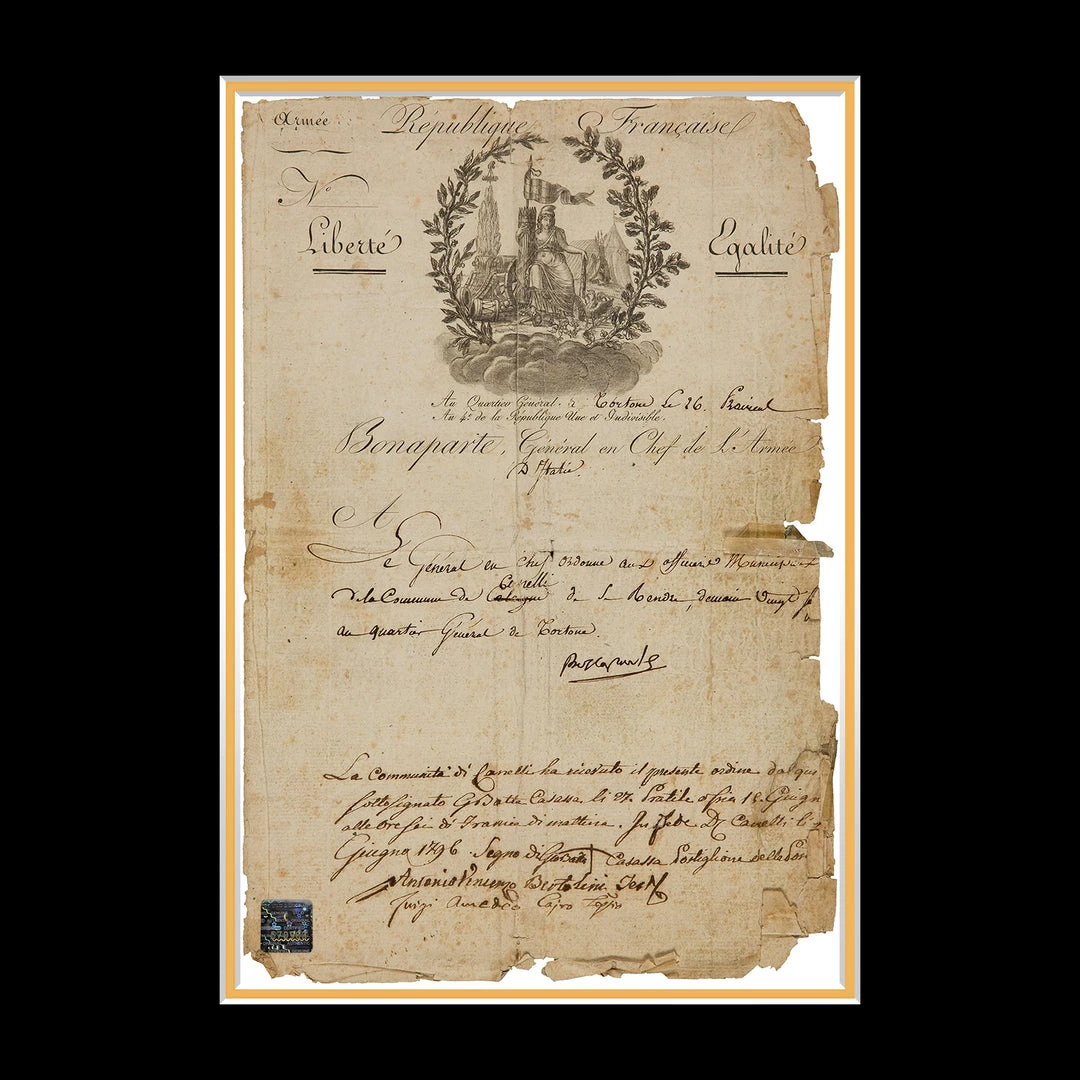 Armée
République Française
N.º
Liberté
Egalité
Au Quartier Général à Tortone le 26. Prairial
Au 4.e de la République Une et Indivisible.
Bonaparte, Général en Chef de L'Armée
D'Italie.
A
Le Général en chef ordonne aux officiers Municipaux
de la Commune de Canelli de se Rendre, demain vingt
au quartier Général de Tortone.
Bonaparte
La Communità di Canelli ha ricevuto il presente ordine dal qui
sottosignato Casassa li 27. Pratile ossia 15. Giugn
alle ore sei di mattina. In fede Di Canelli li
Giugno 1796. Segno di Casassa Postiglione della
Antonio Vincenzo Bertolini Test
Luigi Amedeo